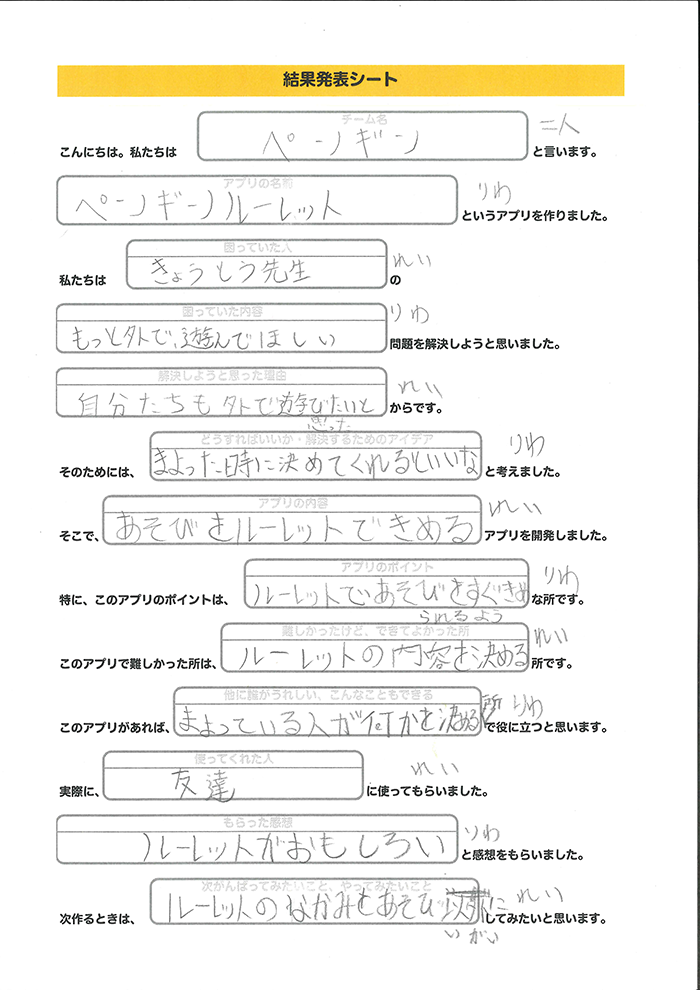 結果発表シート
チーム名
こんにちは。私たちは ペンギン と言います。 二人
アプリの名前
ペンギンルーレット というアプリを作りました。 りわ
困っていた人
私たちは きょうとう先生 の れい
困っていた内容
もっと外で遊んでほしい 問題を解決しようと思いました。 りわ
解決しようと思った理由
自分たちも外で遊びたいと思った からです。 れい
どうすればいいか・解決するためのアイデア
そのためには、 まよった時に決めてくれるといいな と考えました。 りわ
アプリの内容
そこで、 あそびをルーレットできめる アプリを開発しました。 れい
アプリのポイント
特に、このアプリのポイントは、 ルーレットであそびをすぐきめられるよう な所です。 りわ
難しかったけど、できてよかった所
このアプリで難しかった所は、 ルーレットの内容を決める 所です。 れい
他に誰がうれしい、こんなこともできる
このアプリがあれば、 まよっている人が何かを決める所 で役に立つと思います。 りわ
使ってくれた人
実際に、 友達 に使ってもらいました。 れい
もらった感想
ルーレットがおもしろい と感想をもらいました。 りわ
次がんばってみたいこと、やってみたいこと
次作るときは、 ルーレットのなかみをあそびいがいに してみたいと思います。 れい